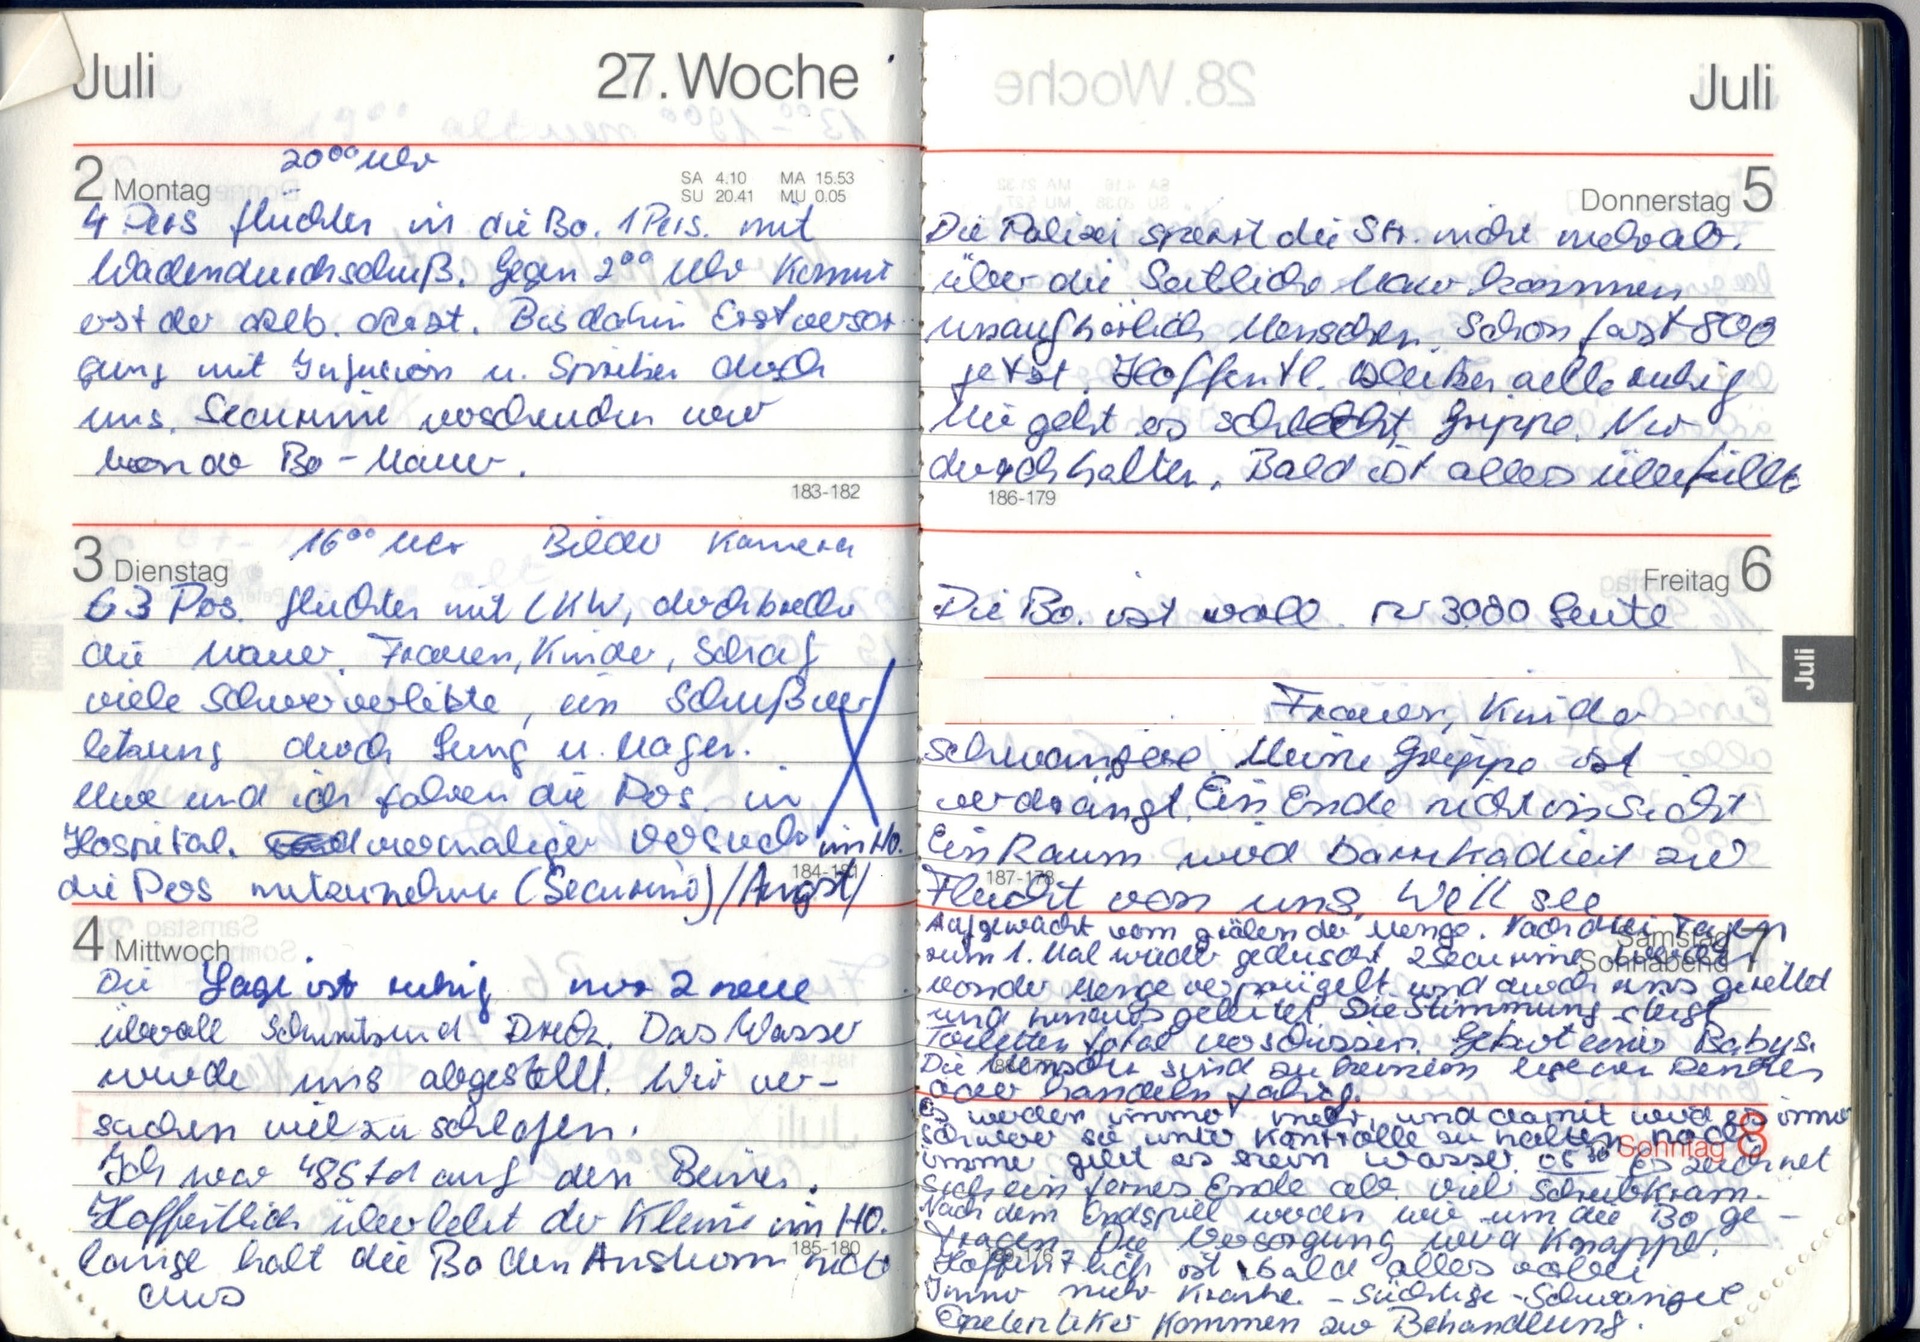 Juli 27. Woche
20⁰⁰ Uhr
2 Montag
SA 4.10 MA 15.53
SU 20.41 MU 0.05
4 Pers flüchten in die Bo. 1 Pers. mit
Wadendurchschuß. Gegen 2⁰⁰ Uhr kommt
erst der alb. Arzt. Bis dahin Erstversor
gung mit Infusion u. Spritzen durch
uns. Securimi verschwinden
von der Bo-Mauer.
183-182
16⁰⁰ Uhr Bilder Kamera
3 Dienstag
63 Pers. flüchten mit LKW, durchbrechen
die Mauer. Frauen, Kinder, Schaf
viele Schwerverletzte, ein Schußver
letzung durch Lung u. Magen.
Uwe und ich fahren die Pers. in
Hospital. mermaliger Versuch im Ho.
die Pers mitzunehmen (Securimi) /Angst/
184-181
4 Mittwoch
Die Lage ist ruhig nur 2 neue
überall Schmutz und Dreck. Das Wasser
wurde uns abgestellt. Wir ver-
suchen viel zu schlafen.
Ich war 48 Std auf den Beinen.
Hoffentlich überlebt der Kleine im HO.
lange halt die Bo den Ansturm nicht
aus
185-180
28. Woche
Juli
Donnerstag 5
Die Polizei sperrt die Str. nicht mehr ab.
über die Seitliche Mauer kommen
unaufhörlich Menschen. Schon fast 800
jetzt. Hoffentl. bleiben alle ruhig
Mir geht es schlecht, Grippe. Nur
durchhalten. Bald ist alles überfüllt
186-179
Freitag 6
Die Bo. ist voll. ~ 3000 Leute
Juli
Frauen, Kinder
schwangere. Meine Grippe ist
verdrängt. Ein Ende nicht in Sicht
Ein Raum wird barrikadiert zur
187-178
Flucht von uns. Will see
Aufgewacht vom grölen der Menge. Nach drei Tagen
Samstag
zum 1. Mal wieder geduscht 2 Securimi werden
Sonnabend 7
von der Menge verprügelt und durch uns gerettet
und hinaus geleitet Die Stimmung steigt
Toiletten total verschissen. Geburt eines Babys.
Die Menschen sind zu keinem eigenen Denken
oder handeln fähig.
Es werden immer mehr, und damit wird es immer
schwerer sie unter Kontrolle zu halten noch
Sonntag 8
immer gibt es kein Wasser. 05³⁰ Es zeichnet
sich ein fernes Ende ab. viel Schreibkram.
Nach dem Endspiel werden wir um die Bo ge-
tragen. Die Versorgung wird knapper.
Hoffentlich ist bald alles vorbei
Immer mehr Kranke. - Süchtige - Schwangere
Epeleptiker kommen zur Behandlung.